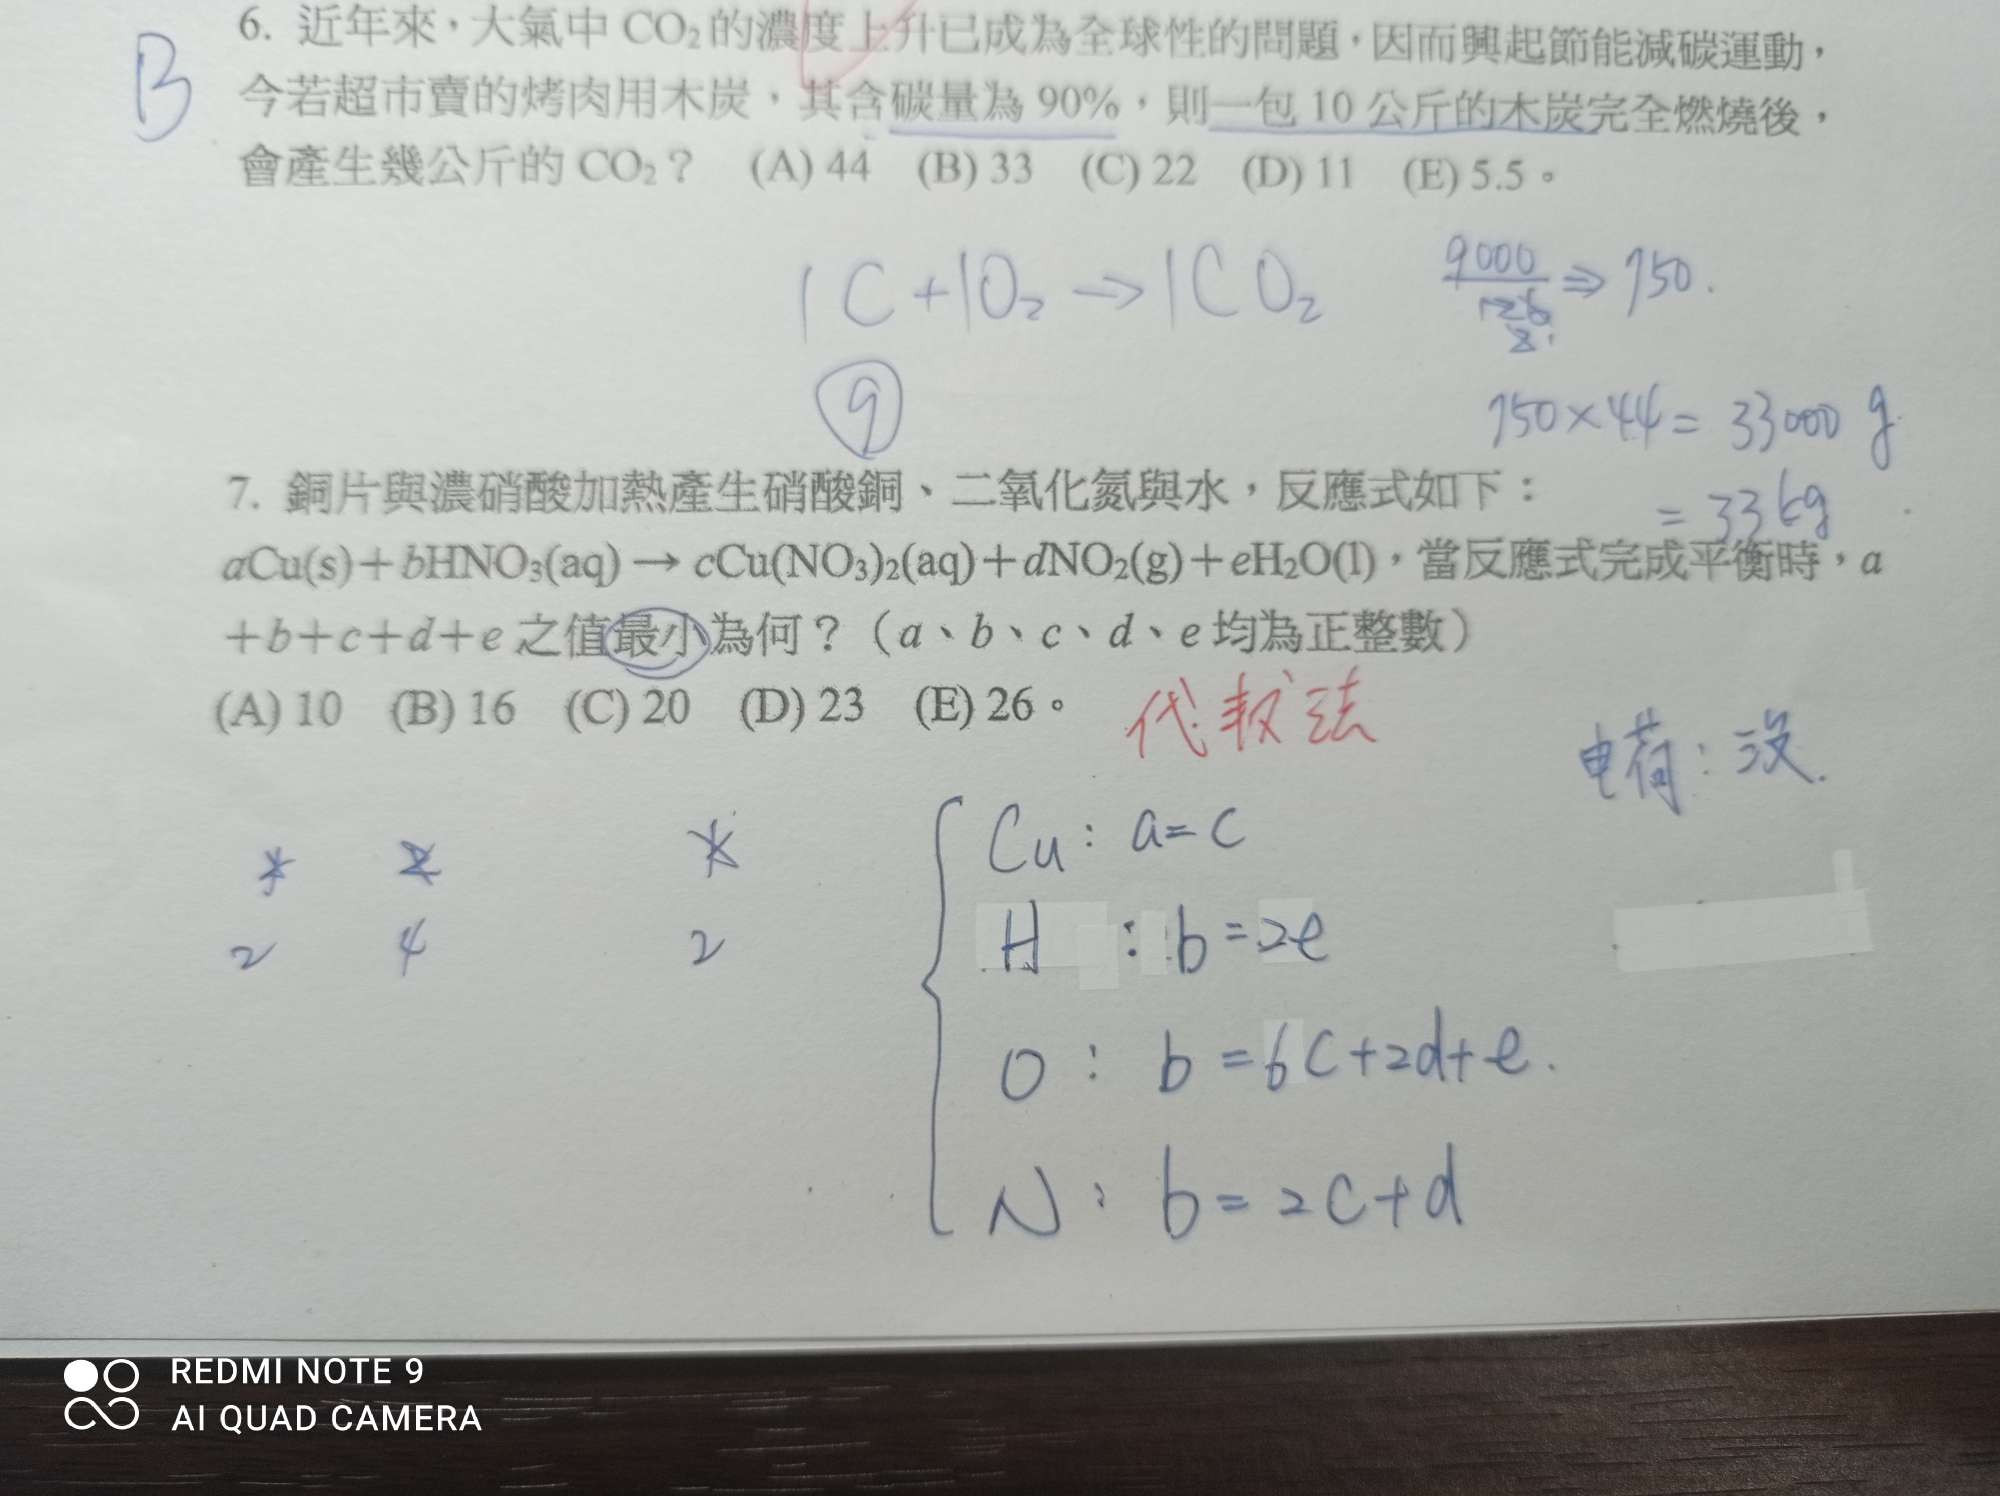 B
6. 近年來，大氣中 CO₂ 的濃度上升已成為全球性的問題，因而興起節能減碳運動，
今若超市賣的烤肉用木炭，其含碳量為 90%，則一包 10 公斤的木炭完全燃燒後，
會產生幾公斤的 CO₂？ (A) 44 (B) 33 (C) 22 (D) 11 (E) 5.5。
1C+1O₂→1CO₂
9000/12 ⇒ 750.
9
750×44= 33000 g.
= 33kg
7. 銅片與濃硝酸加熱產生硝酸銅、二氧化氮與水，反應式如下：
aCu(s)＋bHNO₃(aq) → cCu(NO₃)₂(aq)＋dNO₂(g)＋eH₂O(l)，當反應式完成平衡時，a
＋b＋c＋d＋e 之值最小為何？（a、b、c、d、e 均為正整數）
(A) 10 (B) 16 (C) 20 (D) 23 (E) 26。
代数法
电荷：没.
Cu: a=c
2 4 2
H : b=2e
O : b=6c+2d+e.
N : b=2c+d
REDMI NOTE 9
AI QUAD CAMERA